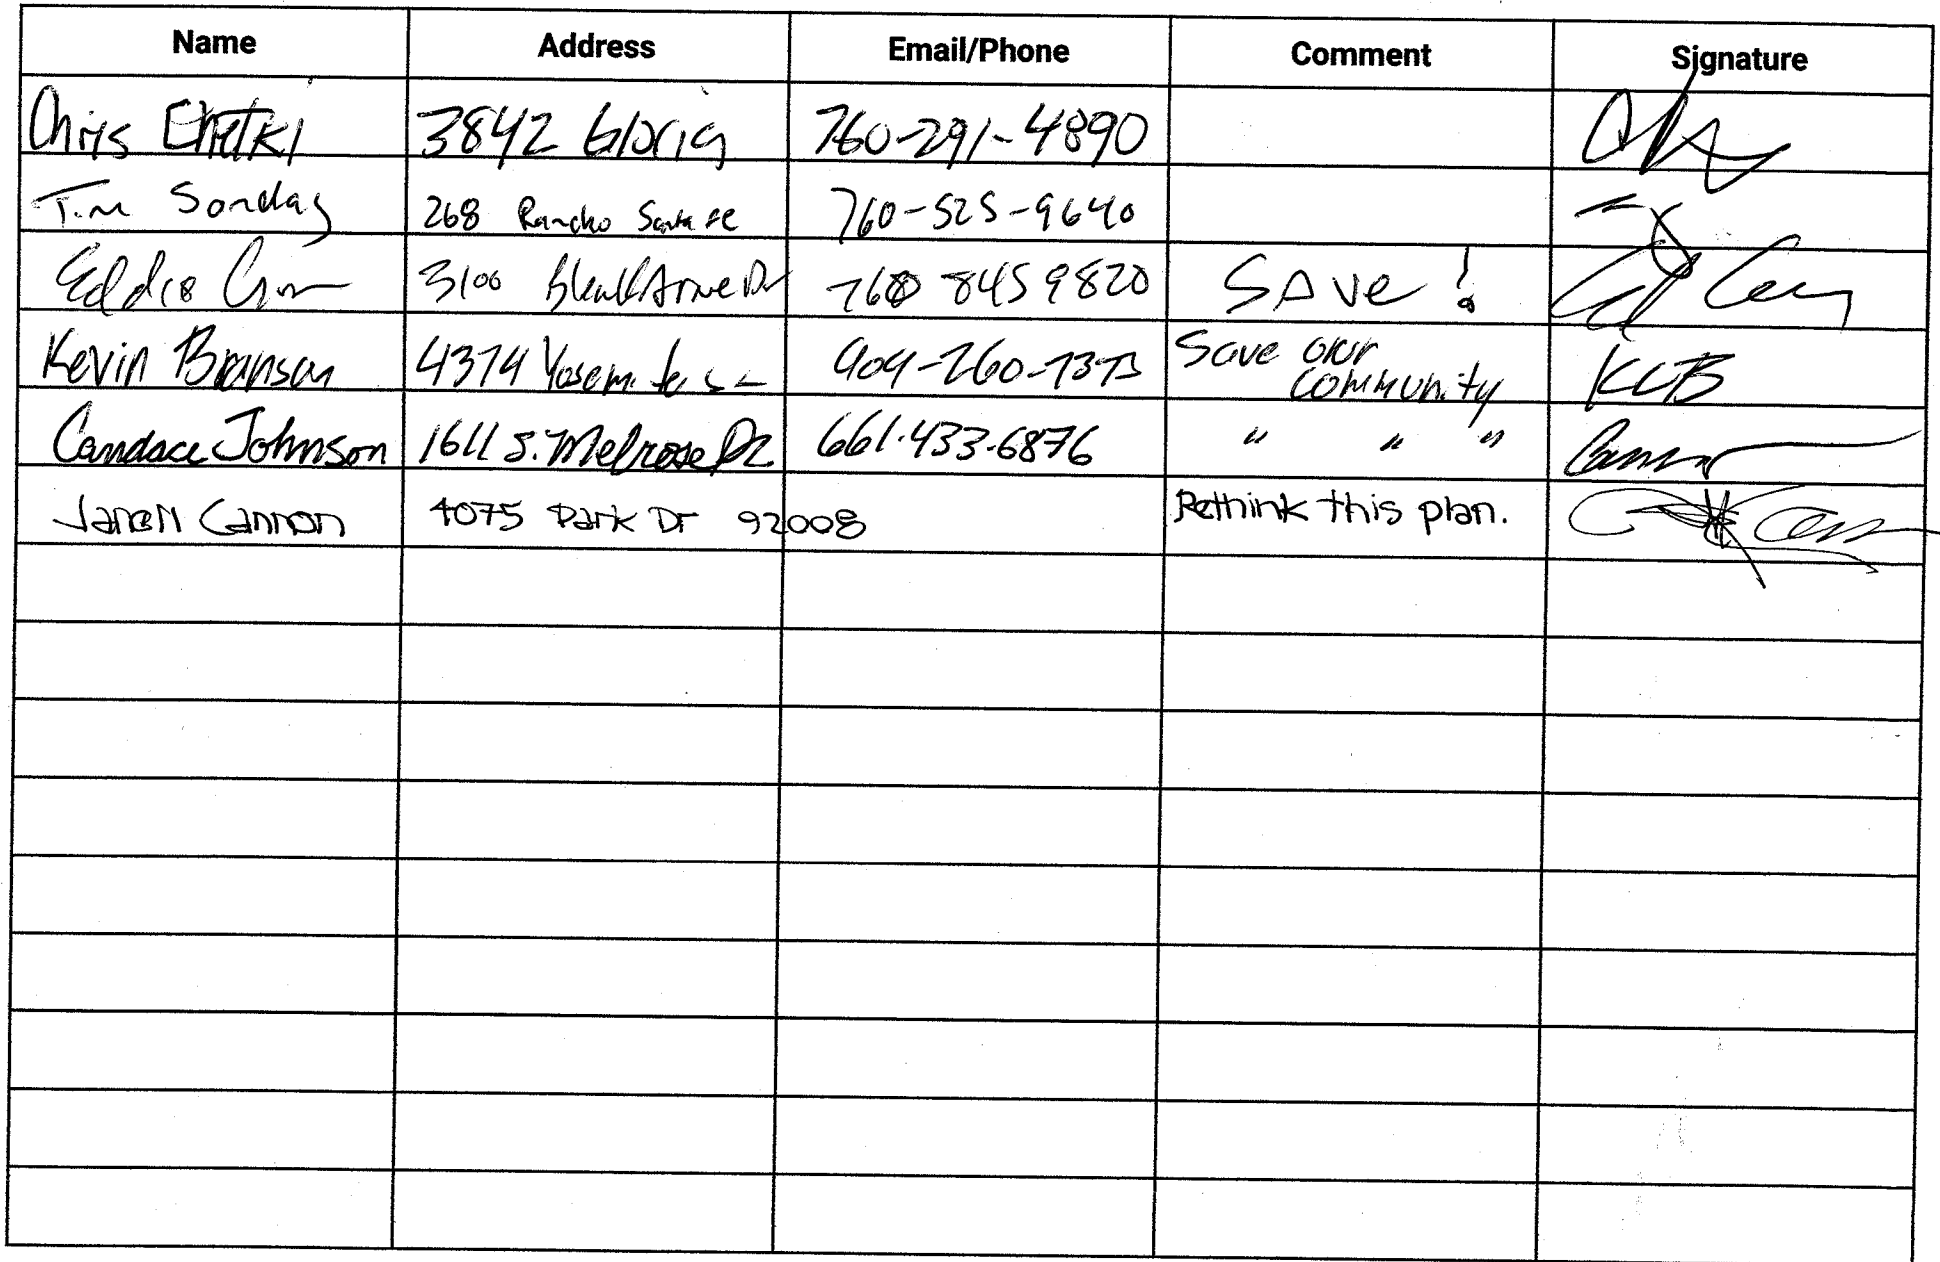 Name Address Email/Phone Comment Signature
Chris 3842 Gloria 760-291-4890
Tim Sonday 268 Rancho Santa Fe 760-525-9640
Eddie 3100 Dr 760 845 9820 SAVE!
Kevin Branson 4374 Yosemite 909-260-7373 Save our community KCB
Candace Johnson 1611 S. Melrose Dr 661.433.6876 " " "
Cannon 4075 Park Dr 92008 Rethink this plan.